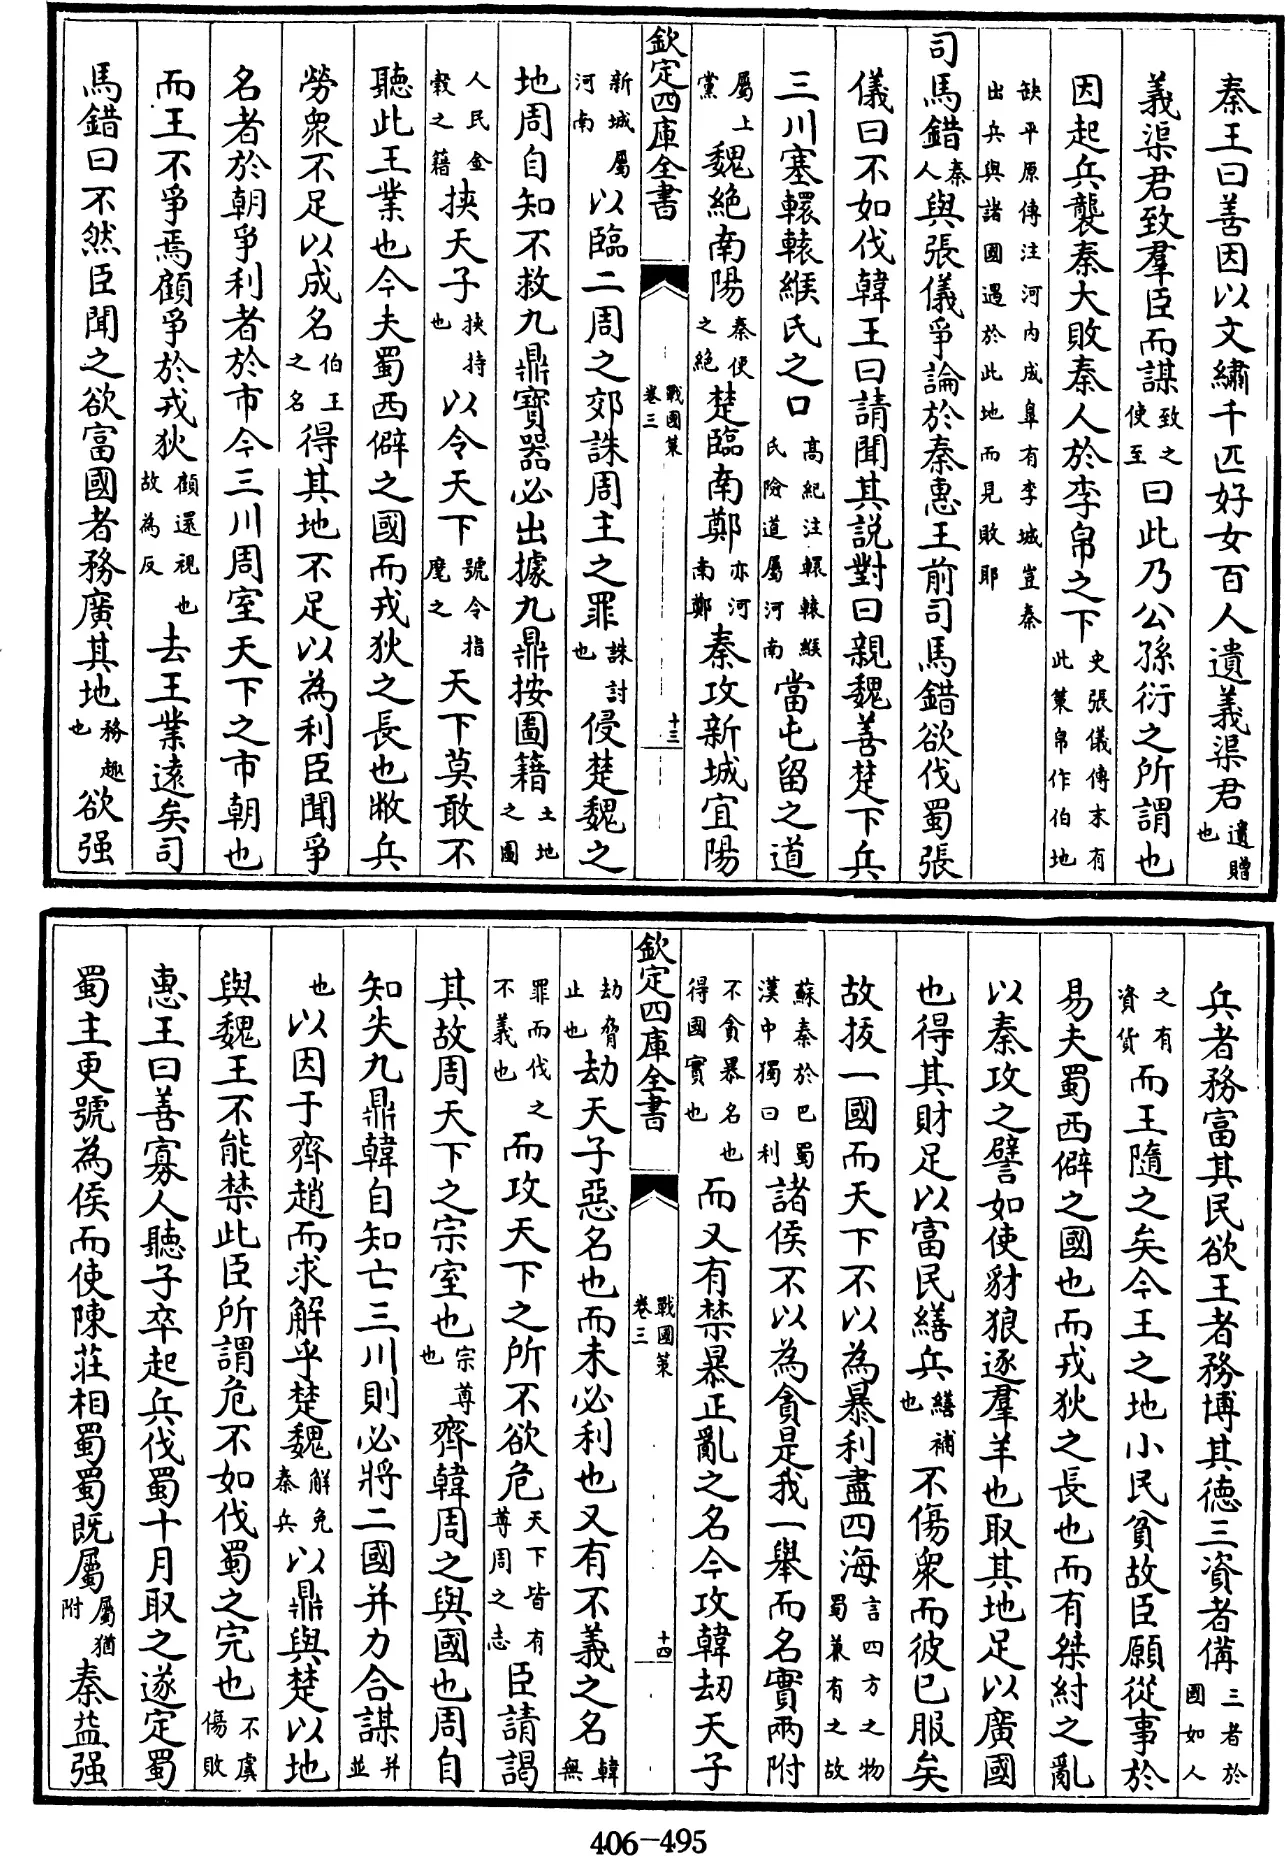 秦王曰善因以文繡千匹好女百人遺義渠君遺贈也
義渠君致羣臣而謀致之使至曰此乃公孫衍之所謂也
因起兵襲秦大敗秦人於李帛之下史張儀傳末有此策帛作伯地
缺平原傳注河内成臯有李城豈秦出兵與諸國遇於此地而見敗耶
司馬錯秦人與張儀爭論於秦惠王前司馬錯欲伐蜀張
儀曰不如伐韓王曰請聞其説對曰親魏善楚下兵
三川塞轘轅緱氏之口高紀注轘轅緱氏險道屬河南當屯留之道
屬上黨魏絶南陽秦使之絶楚臨南鄭亦河南鄭秦攻新城宜陽
欽定四庫全書 戰國策卷三 十三
新城屬河南以臨二周之郊誅周主之罪誅討也侵楚魏之
地周自知不救九鼎寶器必出據九鼎按圖籍土地之圖
人民金穀之籍挾天子挾持也以令天下號令指麾之天下莫敢不
聽此王業也今夫蜀西僻之國而戎狄之長也敝兵
勞衆不足以成名伯王之名得其地不足以為利臣聞爭
名者於朝爭利者於市今三川周室天下之市朝也
而王不爭焉顧爭於戎狄顧還視也故為反去王業遠矣司
馬錯曰不然臣聞之欲富國者務廣其地務趣也欲强
兵者務富其民欲王者務博其德三資者備三者於國如人
之有資貨而王隨之矣今王之地小民貧故臣願從事於
易夫蜀西僻之國也而戎狄之長也而有桀紂之亂
以秦攻之譬如使豺狼逐羣羊也取其地足以廣國
也得其財足以富民繕兵繕補也不傷衆而彼已服矣
故拔一國而天下不以為暴利盡四海言四方之物蜀兼有之故
蘇秦於巴蜀漢中獨曰利諸侯不以為貪是我一舉而名實兩附
不貪暴名也得國實也而又有禁暴正亂之名今攻韓刼天子
欽定四庫全書 戰國策卷三 十四
劫脅止也劫天子惡名也而未必利也又有不義之名韓無
罪而伐之不義也而攻天下之所不欲危天下皆有尊周之志臣請謁
其故周天下之宗室也宗尊也齊韓周之與國也周自
知失九鼎韓自知亡三川則必將二國并力合謀并並
也以因于齊趙而求解乎楚魏解免秦兵以鼎與楚以地
與魏王不能禁此臣所謂危不如伐蜀之完也不虞傷敗
惠王曰善寡人聽子卒起兵伐蜀十月取之遂定蜀
蜀主更號為侯而使陳莊相蜀蜀既屬屬猶附秦益强
406-495